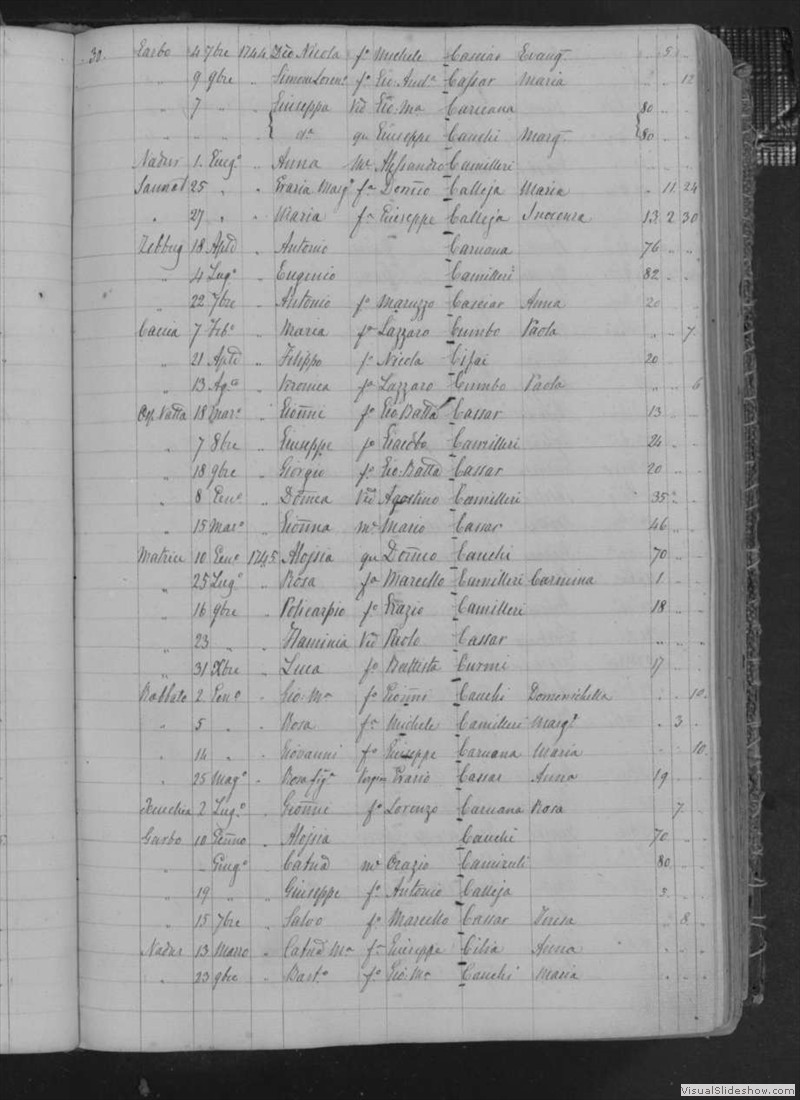 30. Garbo 4 7bre 1744 Dco Nicola fo Michele Casciar Evangta .. 5 ..
.. 9 9bre .. Simon Lorenzo fo Gio: Andra Cassar Maria .. .. 12
.. 7 .. .. Giuseppa Vid Gio: Ma Caruana 80 .. ..
.. .. .. .. da qu Giuseppe Cauchi Marga 80 .. ..
Nadur 1. Giugo .. Anna mr Alessandro Camilleri
Sannat 25 .. .. Grazia Marga fa Domco Calleja Maria .. 11 24
.. 27 .. .. Maria fa Giuseppe Calleja Inocenza 13 2 30
Zebbug 18 Aple .. Antonio Caruana 76 .. ..
.. 4 Lugo .. Eugenio Camilleri 82 .. ..
.. 22 7bre .. Antonio fo Maruzzo Casciar Anna 20 .. ..
Caccia 7 Febo .. Maria fa Lazzaro Cumbo Paola .. .. 7
.. 21 Aple .. Filippo fo Nicola Cifai 20 .. ..
.. 13 Ago .. Veronica fa Lazzaro Cumbo Paola .. .. 6
18 Marzo .. Gionni fo Gio Batta Cassar 13 .. ..
.. 7 8bre .. Giuseppe fo Giacobo Camilleri 24 .. ..
.. 18 9bre .. Giorgio fo Gio: Batta Cassar 20 .. ..
.. 8 Geno .. Domca Vid Agostino Camilleri 35 .. ..
.. 15 Maro .. Gionna mr Mario Cassar 46 .. ..
Matrice 10 Geno 1745 Aloisia qu Domco Cauchi 70 .. ..
.. 25 Lugo .. Rosa fa Marcello Camilleri Carmina 1 .. ..
.. 16 9bre .. Policarpio fo Grazio Camilleri 18 .. ..
.. 23 .. .. Flaminia Vid Paolo Cassar .. .. ..
.. 31 Xbre .. Luca fo Battista Curmi 17 .. ..
Rabbato 2 Geno .. Gio: Ma fo Gionni Cauchi Domenichella .. .. 10
.. 5 .. .. Rosa fa Michele Camilleri Marga .. 3 ..
.. 14 .. .. Giovanni fo Giuseppe Caruana Maria .. .. 10
.. 25 Mago .. Rosa figa Vergin Grazio Cassar Anna 19 .. ..
Xeuchia 2 Lugo .. Gionni fo Lorenzo Caruana Rosa .. 7 ..
Garbo 10 Genno .. Aloisia Cauchi 70 .. ..
.. Giugo .. Catna mr Orazio 80 .. ..
.. 19 .. .. Giuseppe fo Antonio Calleja .. ..
.. 15 7bre .. Salvo fo Marcello Cassar Teresa .. 8 ..
Nadur 13 Marzo .. Catna Ma fa Giuseppe Cilia Anna .. .. ..
.. 23 9bre .. Barto fo Gio: Ma Cauchi Maria .. .. ..
VisualSlideshow.com